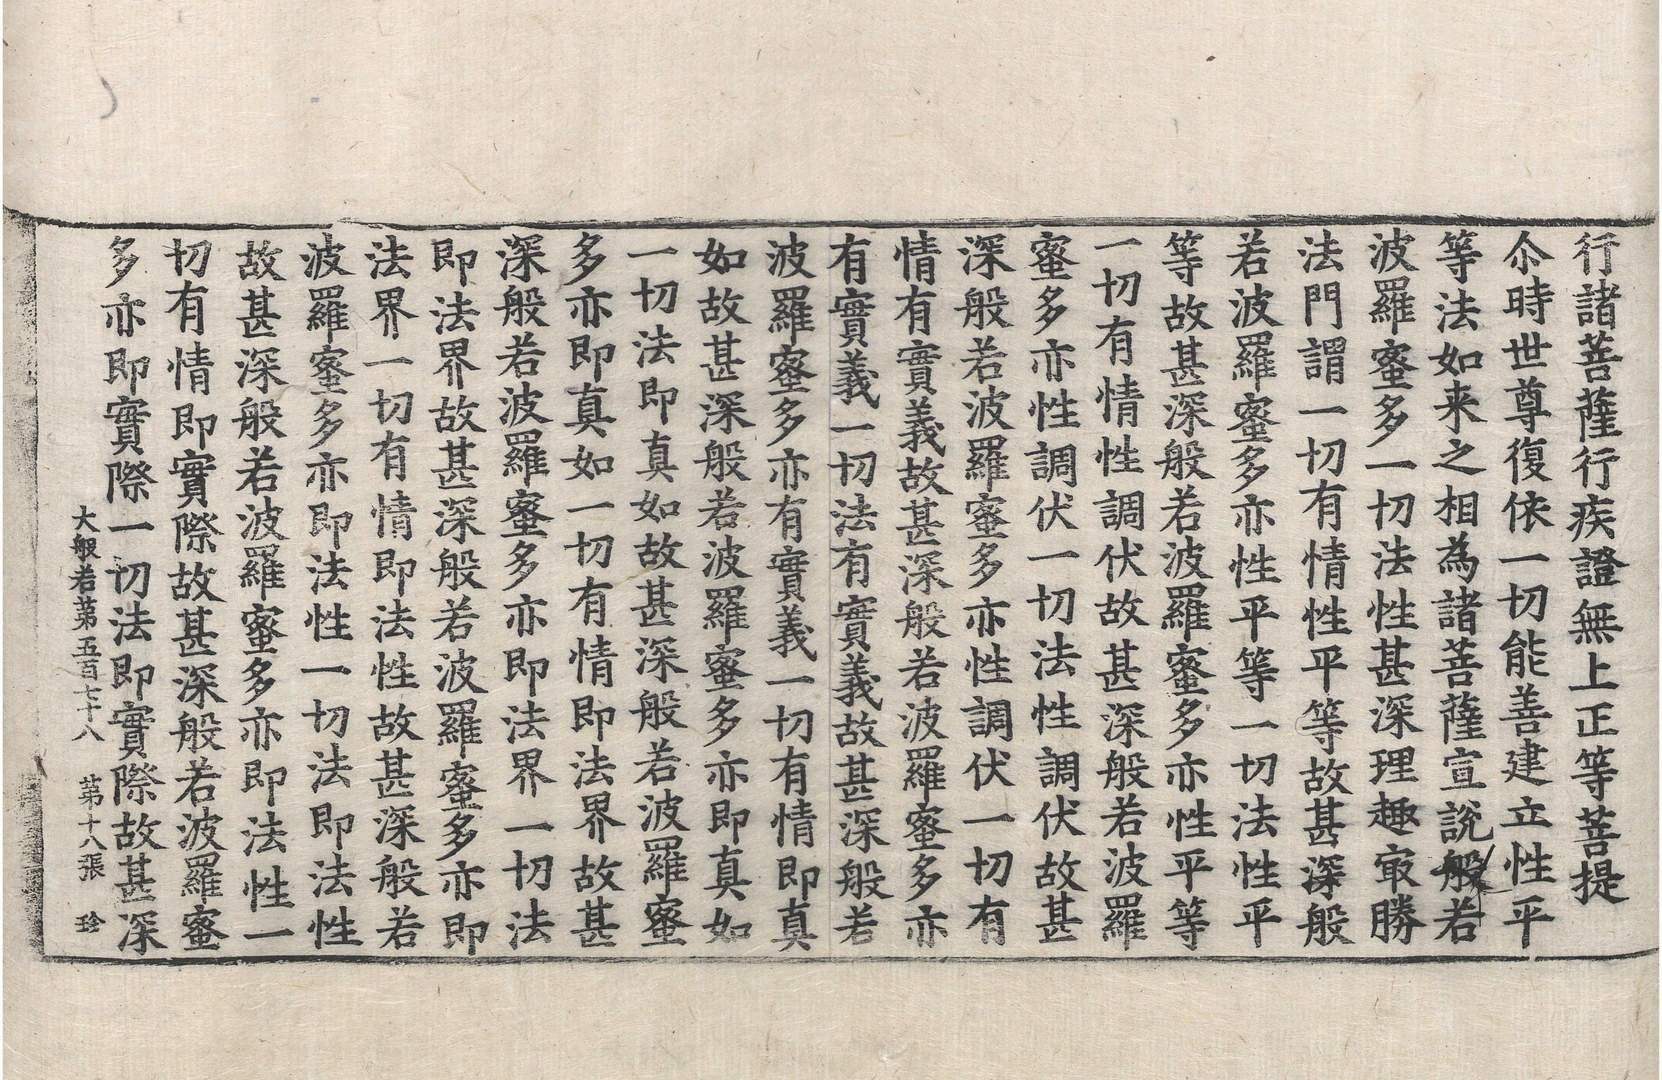 行諸菩薩行疾證無上正等菩提
尒時世尊復依一切能善建立性平
等法如来之相為諸菩薩宣說般若
波羅蜜多一切法性甚深理趣㝡勝
法門謂一切有情性平等故甚深般
若波羅蜜多亦性平等一切法性平
等故甚深般若波羅蜜多亦性平等
一切有情性調伏故甚深般若波羅
蜜多亦性調伏一切法性調伏故甚
深般若波羅蜜多亦性調伏一切有
情有實義故甚深般若波羅蜜多亦
有實義一切法有實義故甚深般若
波羅蜜多亦有實義一切有情即真
如故甚深般若波羅蜜多亦即真如
一切法即真如故甚深般若波羅蜜
多亦即真如一切有情即法界故甚
深般若波羅蜜多亦即法界一切法
即法界故甚深般若波羅蜜多亦即
法界一切有情即法性故甚深般若
波羅蜜多亦即法性一切法即法性
故甚深般若波羅蜜多亦即法性一
切有情即實際故甚深般若波羅蜜
多亦即實際一切法即實際故甚深
大般若第五百七十八 第十八張 珍